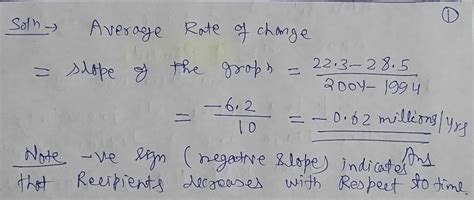 ①
Soln → Average Rate of change
= slope of the graph = 22.3-28.5 / 2004-1994
= -6.2 / 10 = -0.62 millions/yrs
Ans
Note -ve sign (negative slope) indicates
that Recipients decreases with Respect to time.